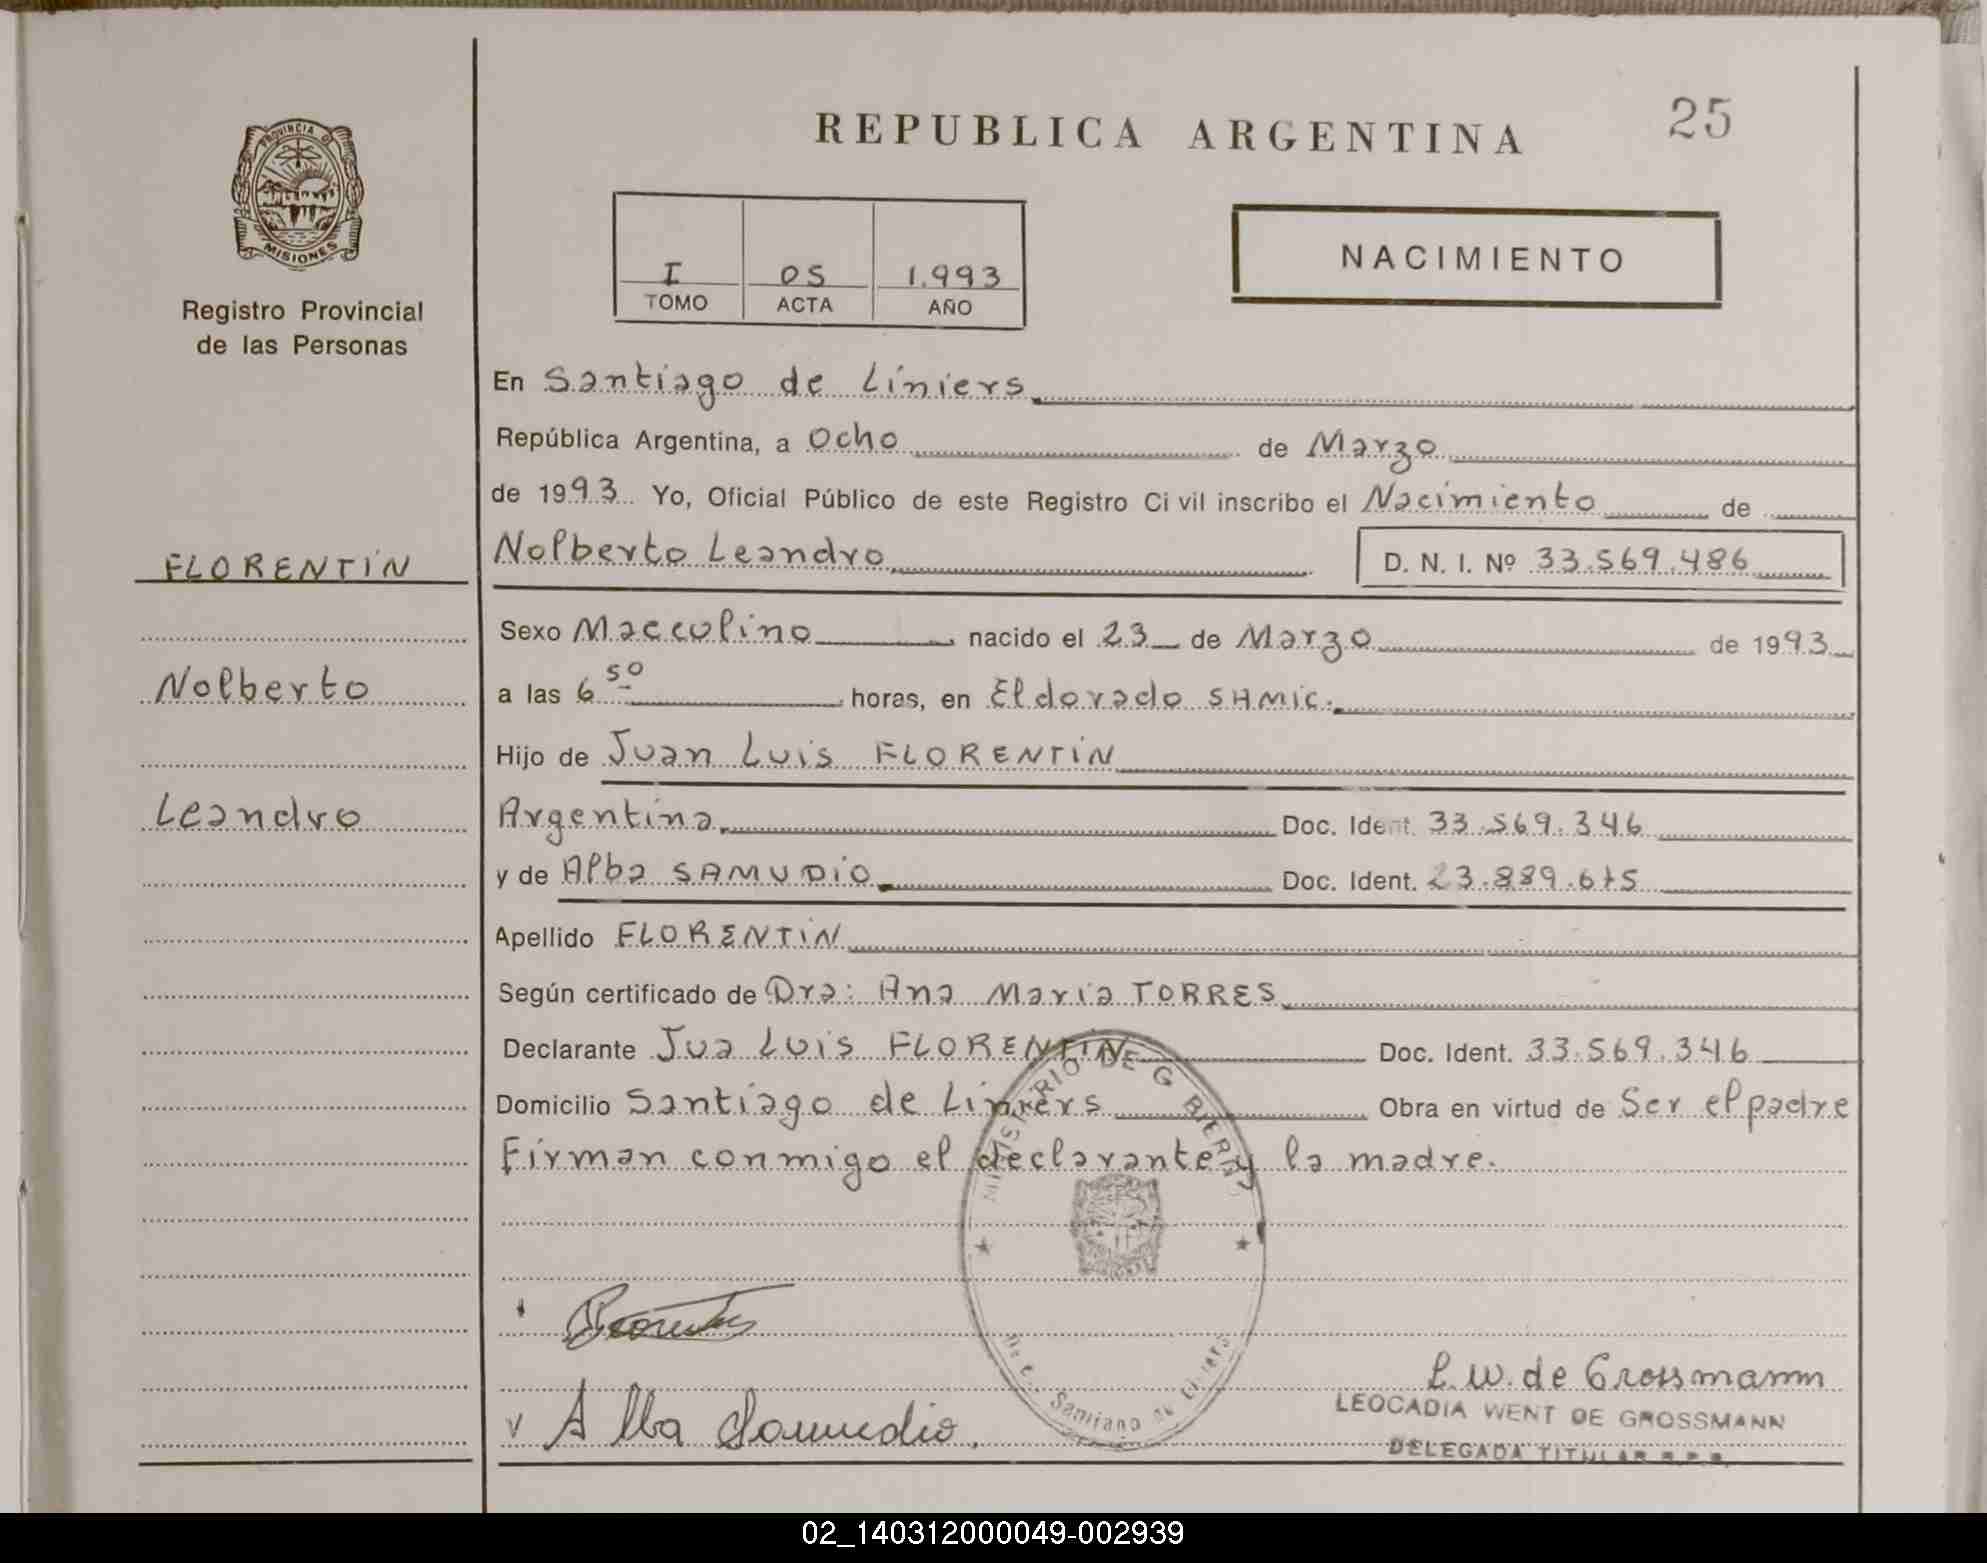 25
REPUBLICA ARGENTINA
PROVINCIA DE
MISIONES
Registro Provincial
de las Personas
I 05 1.993
TOMO ACTA AÑO
NACIMIENTO
En Santiago de Liniers
República Argentina, a Ocho de Marzo
de 1993 Yo, Oficial Público de este Registro Civil inscribo el Nacimiento de
FLORENTÍN
Nolberto Leandro D. N. I. Nº 33.569.486
Sexo Maccolino nacido el 23 de Marzo de 1993
Nolberto
a las 6 50 horas, en Eldorado SHMIC.
Hijo de Juan Luis FLORENTÍN
Leandro
Argentina Doc. Ident. 33.569.346
y de Alba SAMUDIO Doc. Ident. 23.889.675
Apellido FLORENTÍN
Según certificado de Dra: Ana María TORRES
Declarante Jua Luis FLORENTÍN Doc. Ident. 33.569.346
Domicilio Santiago de Liniers Obra en virtud de Ser el padre
Firman conmigo el declarante y la madre.
MINISTERIO DE G BIERN
Santiago de Liniers
L. W. de Grossmann
LEOCADIA WENT DE GROSSMANN
DELEGADA TITULAR R.P.P.
Alba Samudio.
02_140312000049-002939